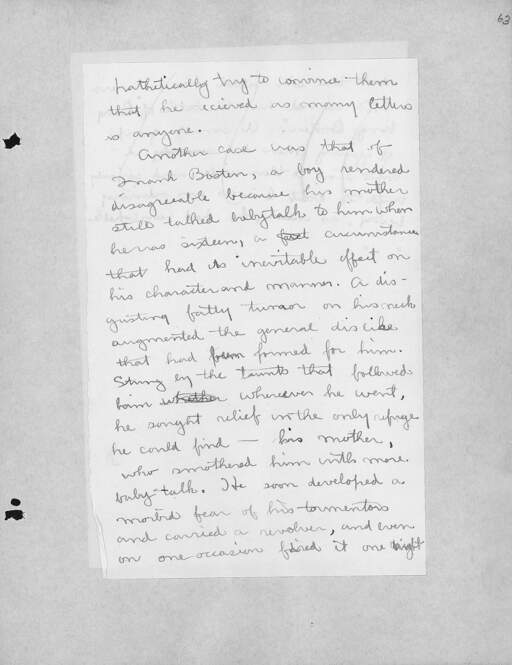 63
pathetically try to convince them
that he recieved as many letters
as anyone.
Another case was that of
Frank Basten, a boy rendered
disagreeable because his mother
still talked babytalk to him when
he was sixteen, a fact circumstance
that had its inevitable effect on
his character and manner. A dis-
gusting fatty tumor on his neck
augmented the general dislike
that had been formed for him.
Stung by the taunts that followed
him whether wherever he went,
he sought relief in the only refuge
he could find — his mother,
who smothered him with more
baby-talk. He soon developed a
morbid fear of his tormentors
and carried a revolver, and even
on one occasion fired it one night